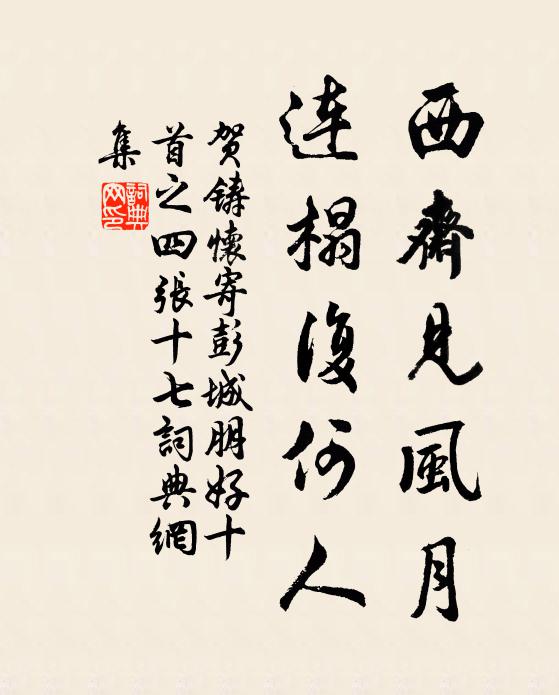 西齋見風月
連榻復何人
賀鑄懷寄彭城朋好十
首之四張十七詞典網
集
詞典
网印